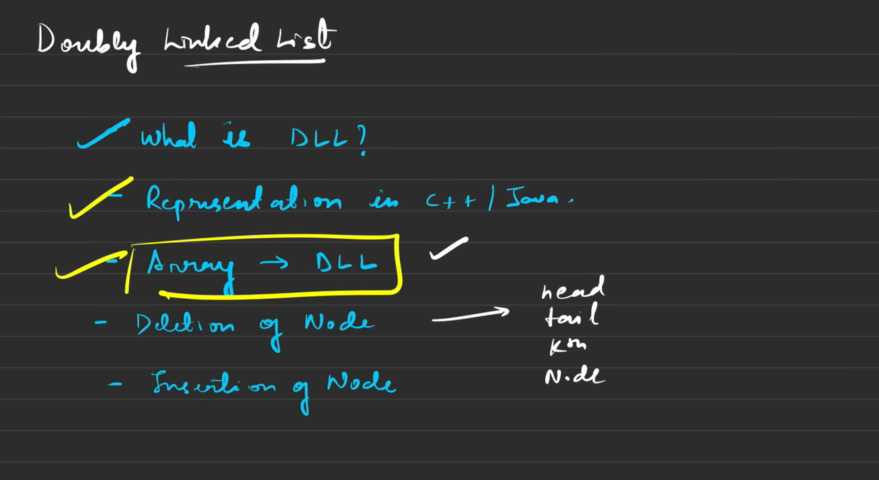 Doubly Linked List
What is DLL?
- Representation in C++ / Java.
- Array → DLL
- Deletion of Node →
head
tail
Kth
Node
- Insertion of Node